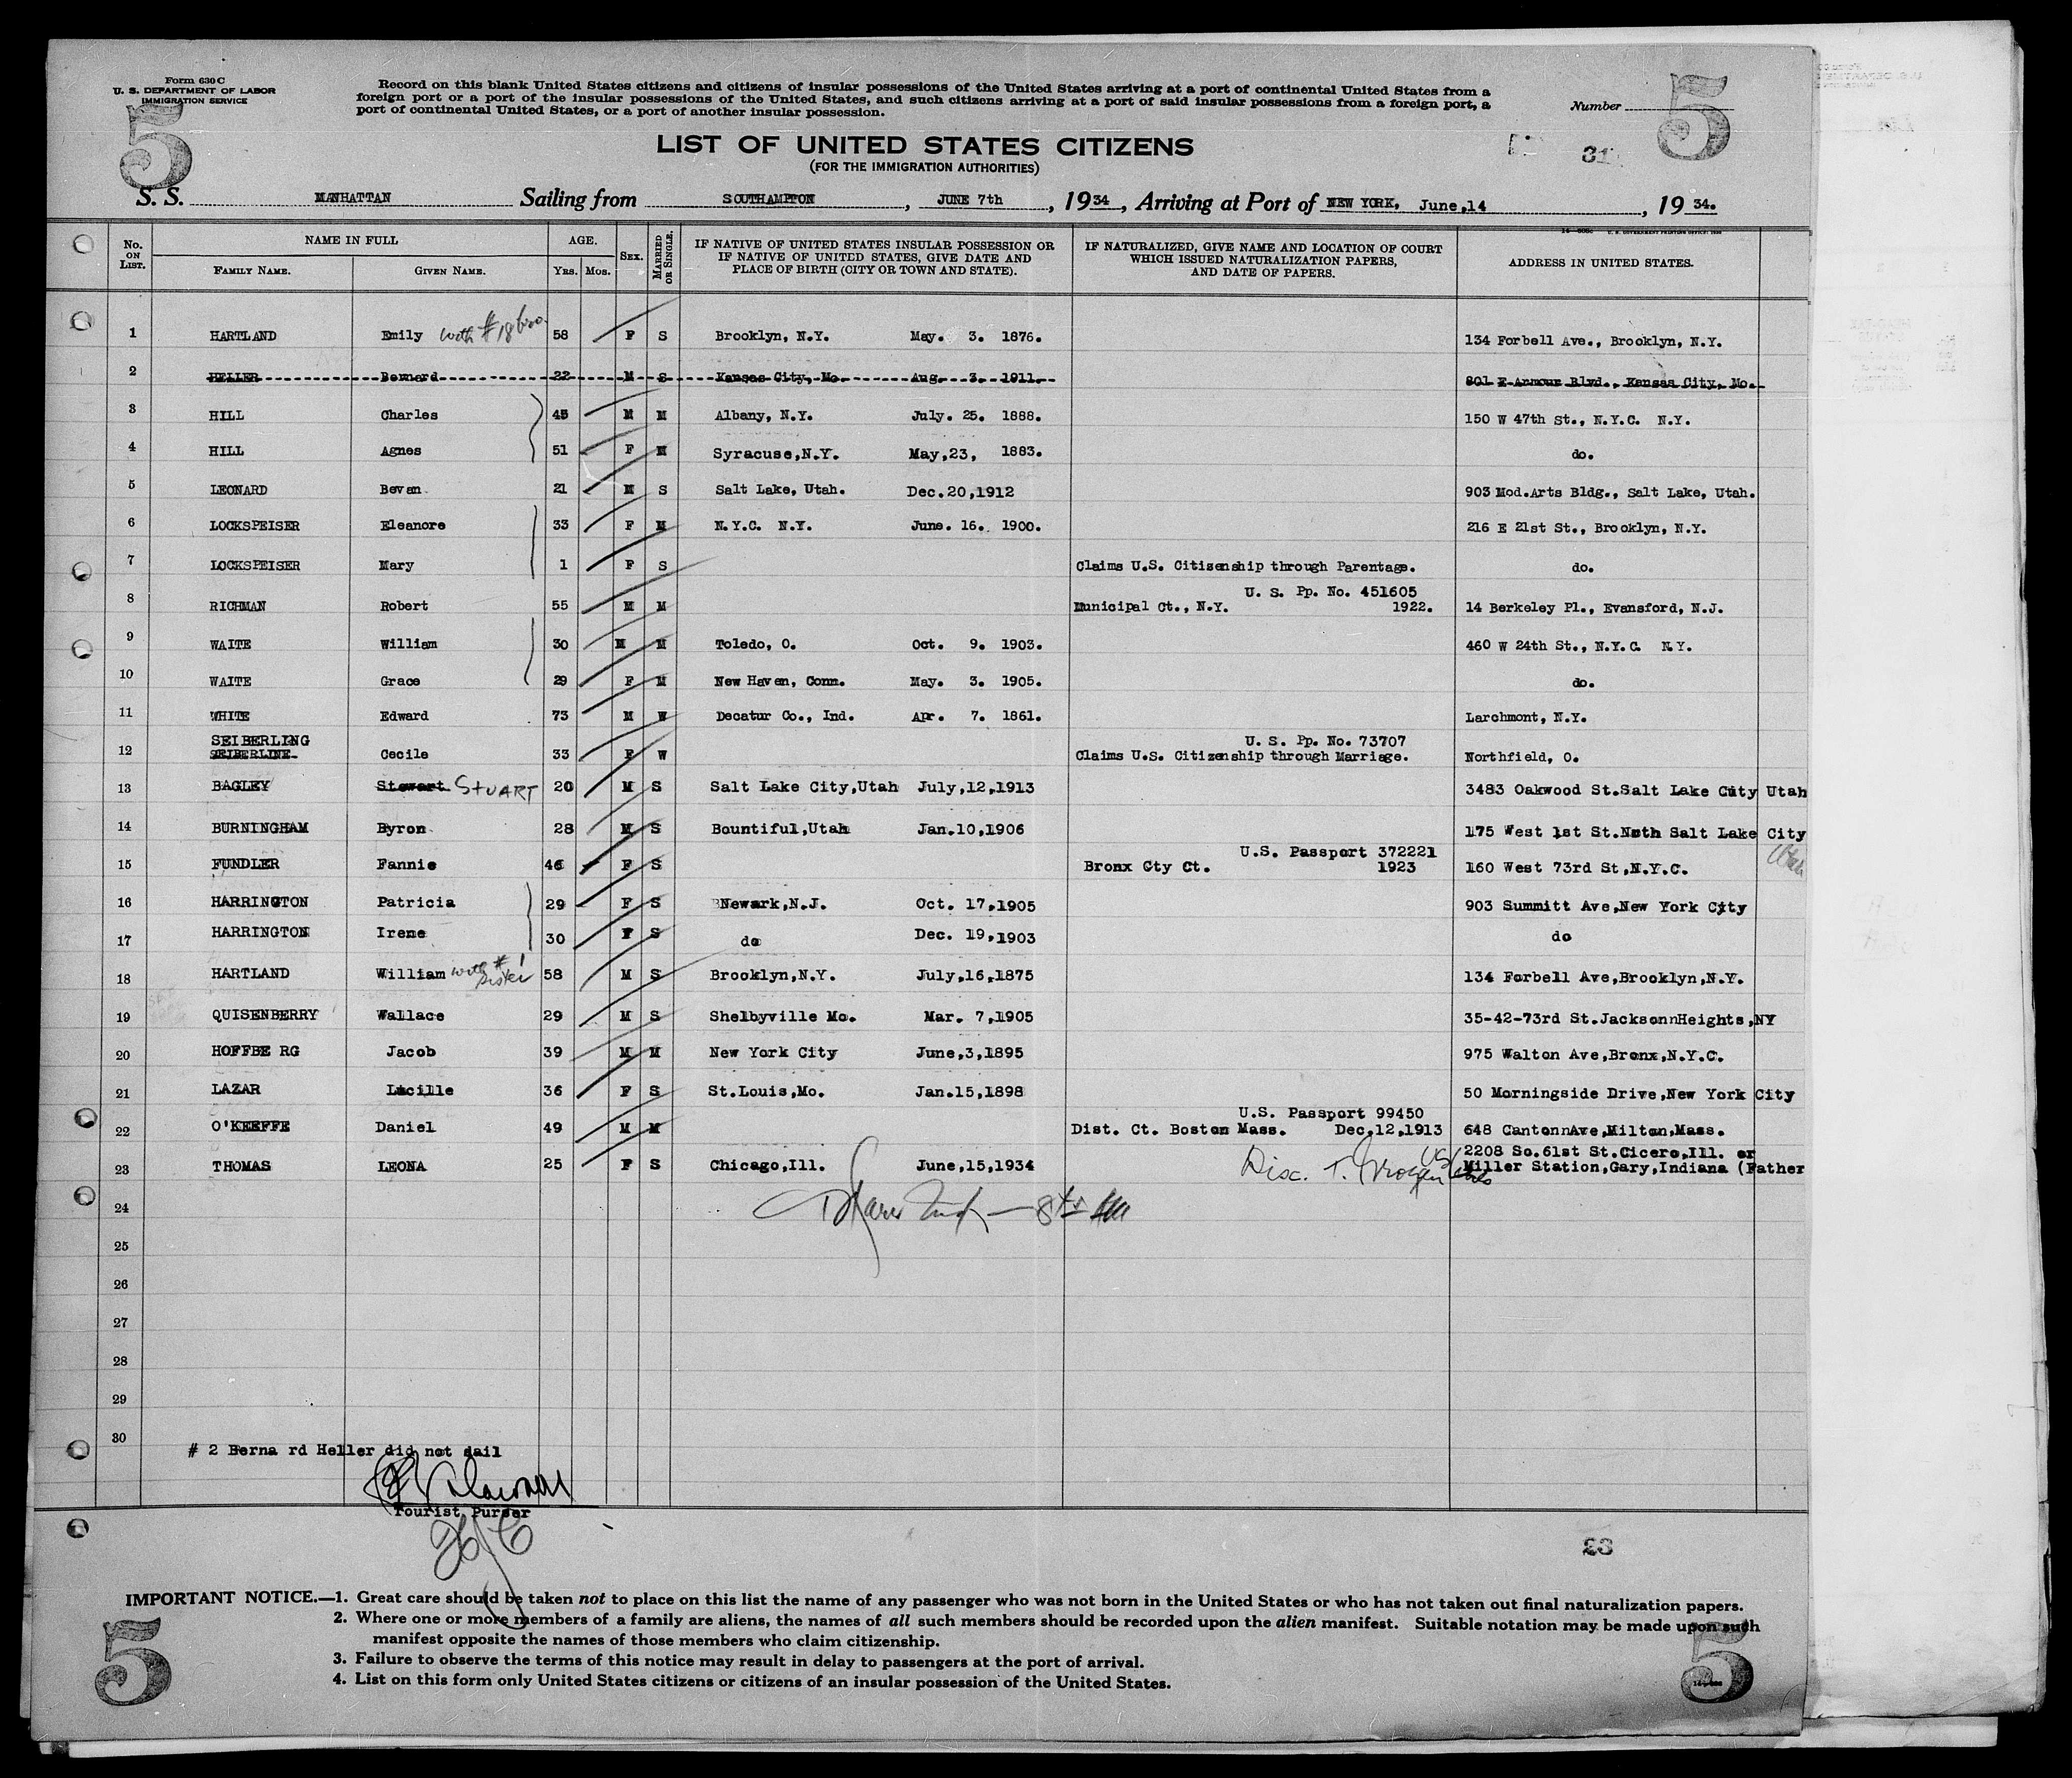 Form 630 C
U. S. DEPARTMENT OF LABOR
IMMIGRATION SERVICE
Record on this blank United States citizens and citizens of insular possessions of the United States arriving at a port of continental United States from a
foreign port or a port of the insular possessions of the United States, and such citizens arriving at a port of said insular possessions from a foreign port, a
port of continental United States, or a port of another insular possession.
Number
5
5
LIST OF UNITED STATES CITIZENS
(FOR THE IMMIGRATION AUTHORITIES)
31
S. S. MANHATTAN Sailing from SOUTHAMPTON, JUNE 7th, 1934, Arriving at Port of NEW YORK, June,14, 1934.
No. ON LIST. NAME IN FULL FAMILY NAME. GIVEN NAME. AGE. YRS. MOS. SEX. MARRIED OR SINGLE. IF NATIVE OF UNITED STATES INSULAR POSSESSION OR IF NATIVE OF UNITED STATES, GIVE DATE AND PLACE OF BIRTH (CITY OR TOWN AND STATE). IF NATURALIZED, GIVE NAME AND LOCATION OF COURT WHICH ISSUED NATURALIZATION PAPERS, AND DATE OF PAPERS. ADDRESS IN UNITED STATES.
1 HARTLAND Emily with #18 bro. 58 F S Brooklyn, N.Y. May. 3. 1876. 134 Forbell Ave., Brooklyn, N.Y.
2 HELLER Bernard 22 M S Kansas City, Mo. Aug. 3. 1911. 801 E Armour Blvd., Kansas City, Mo.
3 HILL Charles 45 M M Albany, N.Y. July. 25. 1888. 150 W 47th St., N.Y.C. N.Y.
4 HILL Agnes 51 F M Syracuse,N.Y. May,23, 1883. do.
5 LEONARD Bevan 21 M S Salt Lake, Utah. Dec.20,1912 903 Mod.Arts Bldg., Salt Lake, Utah.
6 LOCKSPEISER Eleanore 33 F M N.Y.C. N.Y. June. 16. 1900. 216 E 21st St., Brooklyn, N.Y.
7 LOCKSPEISER Mary 1 F S Claims U.S. Citizenship through Parentage. do.
U. S. Pp. No. 451605
8 RICHMAN Robert 55 M M Municipal Ct., N.Y. 1922. 14 Berkeley Pl., Evansford, N.J.
9 WAITE William 30 M M Toledo, O. Oct. 9. 1903. 460 W 24th St., N.Y.C. N.Y.
10 WAITE Grace 29 F M New Haven, Conn. May. 3. 1905. do.
11 WHITE Edward 73 M W Decatur Co., Ind. Apr. 7. 1861. Larchmont, N.Y.
SEIBERLING U. S. Pp. No. 73707
12 SEIBERLINE Cecile 33 F W Claims U.S. Citizenship through Marriage. Northfield, O.
13 BAGLEY Stewart STUART 20 M S Salt Lake City,Utah July,12,1913 3483 Oakwood St.Salt Lake City Utah
14 BURNINGHAM Byron 28 M S Bountiful,Utah Jan.10,1906 175 West 1st St.Noth Salt Lake City
Utah
U.S. Passport 372221
15 FUNDLER Fannie 46 F S Bronx Cty Ct. 1923 160 West 73rd St,N.Y.C.
16 HARRINGTON Patricia 29 F S Newark,N.J. Oct. 17,1905 903 Summitt Ave,New York City
17 HARRINGTON Irene 30 F S do Dec. 19,1903 do
18 HARTLAND William with #1 sister 58 M S Brooklyn,N.Y. July,16,1875 134 Forbell Ave,Brooklyn,N.Y.
19 QUISENBERRY Wallace 29 M S Shelbyville Mo. Mar. 7,1905 35-42-73rd St.JacksonnHeights,NY
20 HOFFBE RG Jacob 39 M M New York City June,3,1895 975 Walton Ave,Bronx,N.Y.C.
21 LAZAR Lucille 36 F S St.Louis,Mo. Jan.15,1898 50 Morningside Drive,New York City
U.S. Passport 99450
22 O'KEEFFE Daniel 49 M M Dist. Ct. Boston Mass. Dec,12,1913 648 CantonnAve,Milton,Mass.
2208 So.61st St.Cicero,Ill. or
23 THOMAS LEONA 25 F S Chicago,Ill. June,15,1934 Disc. T. Miller Station,Gary,Indiana (Father
24
25
26
27
28
29
30
# 2 Berna rd Heller did not sail
Tourist Purser
23
IMPORTANT NOTICE.—1. Great care should be taken not to place on this list the name of any passenger who was not born in the United States or who has not taken out final naturalization papers.
2. Where one or more members of a family are aliens, the names of all such members should be recorded upon the alien manifest. Suitable notation may be made upon such
manifest opposite the names of those members who claim citizenship.
3. Failure to observe the terms of this notice may result in delay to passengers at the port of arrival.
4. List on this form only United States citizens or citizens of an insular possession of the United States.
5
5